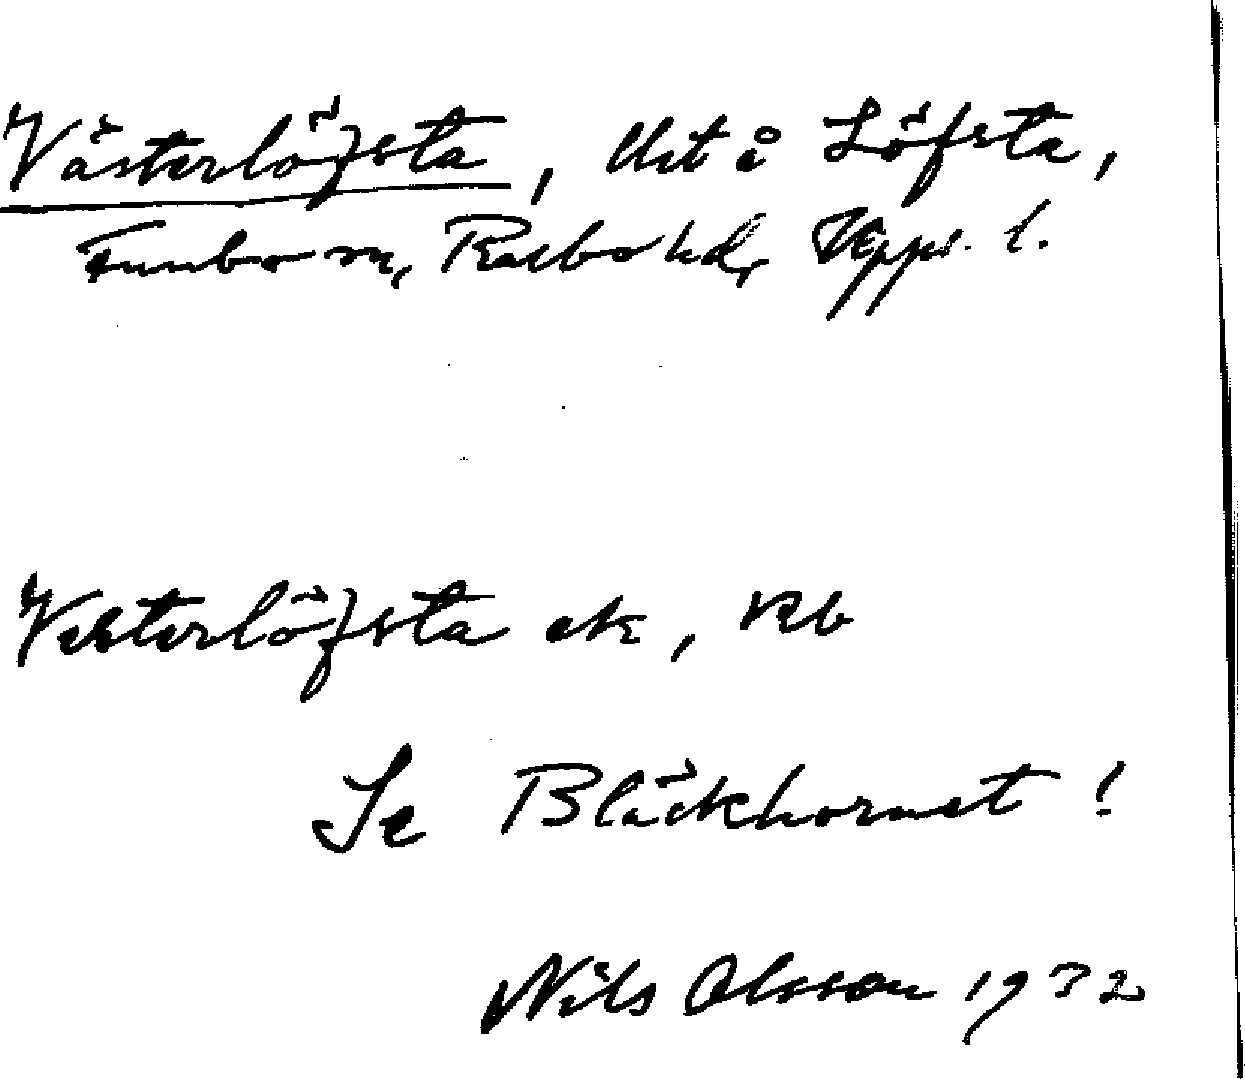 Västerlöfsta, Utt å Löfsta,
Funbo sn, Rasbo hd, Upps. l.
Vesterlöfsta ek, Rb
Se Bläckhornet!
Nils Olsson 1932